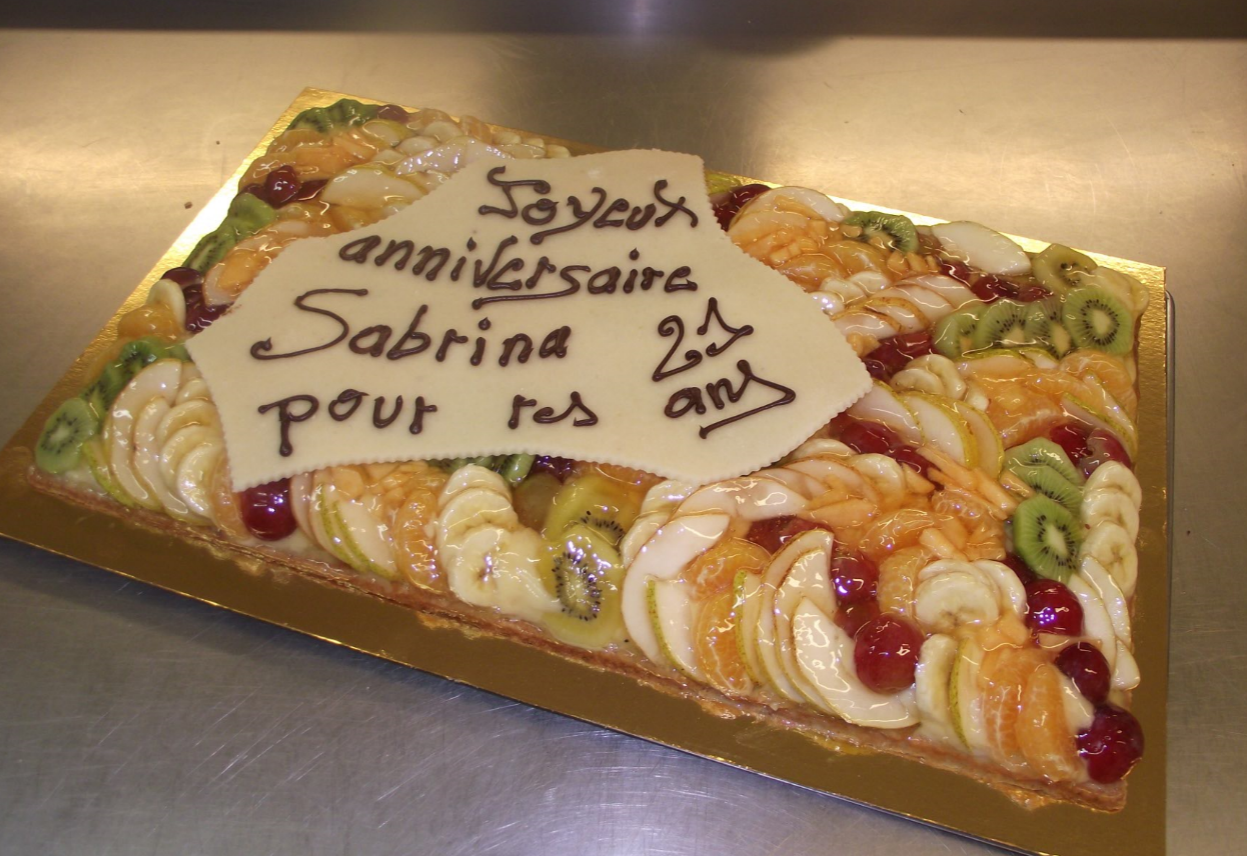 Joyeux
anniversaire
Sabrina 21
pour tes ans